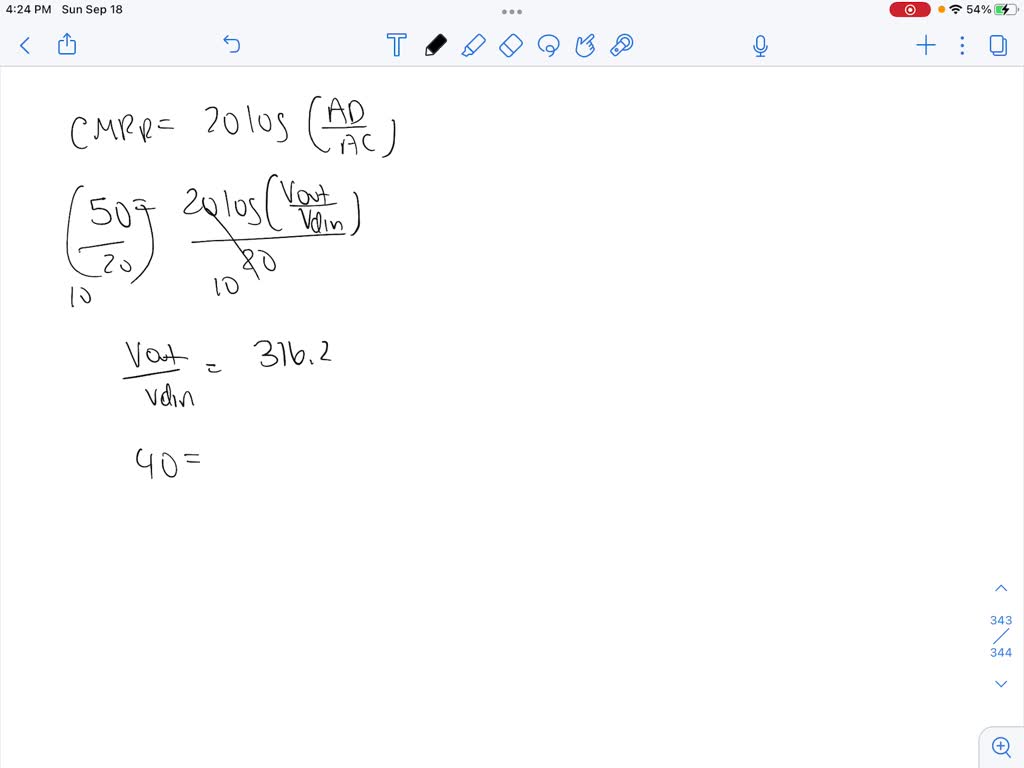 4:24 PM Sun Sep 18
54%
T
CMRR= 20 log (AD/AC)
(50/20) = 20 log (Vout/Vdin)/20
10 10
Vout/Vdin = 316.2
40=
343
344